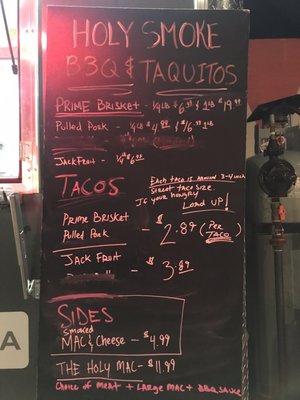 HOLY SMOKE
BBQ & TAQUITOS
PRIME BRISKET - 1/4 lb $6.99 & 1 lb $19.99
Pulled Pork - 1/4 lb $4.99 & $16.99 1 lb
Jack Fruit - 1/4 lb $6.99
TACOS
Each taco is around 3-4 inch
Street taco size.
If your hungry
Load up!
Prime Brisket
Pulled Pork
- $2.89 (Per TACO)
Jack Fruit - $3.89
SIDES
Smoked
MAC & Cheese - $4.99
THE HOLY MAC - $11.99
Choice of meat + Large MAC + BBQ SAUCE
A